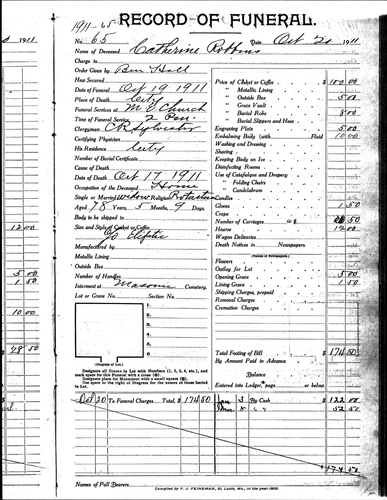 1911-65
RECORD OF FUNERAL.
1911
No. 65 Date Oct 20 1911
Name of Deceased Catherine Robbins
Charge to
Order Given by Ben Hall
How Secured
Date of Funeral Oct 19 1911
Place of Death City
Funeral Services at M E Church
Time of Funeral Service 2 Pm.
Clergyman
Certifying Physician
His Residence City
Number of Burial Certificate
Cause of Death
Date of Death Oct 17 1911
Occupation of the Deceased Home
Single or Married Widow Religion
Aged 78 Years 5 Months 9 Days
Body to be shipped to
Size and Style of Casket or Coffin
Manufactured by
Metallic Lining
Outside Box
Number of Handles
Interment at Masonic Cemetery.
Lot or Grave No. Section No.
1.
2.
3.
4.
5.
6.
(Diagram of Lot.)
Designate all Graves in Lot with Numbers (1, 2, 3, 4, etc.), and
mark space for this Funeral with a cross (X).
Designate place for Monument with a small square (□).
Use space to the right of Diagram for the names of those buried
in Lot.
Price of Casket or Coffin $ 100.00
" Metallic Lining
" Outside Box 5 00
" Grave Vault
" Burial Robe 8 00
" Burial Slippers and Hose
Engraving Plate 5 00
Embalming Body (with Fluid 10 00
Washing and Dressing
Shaving
Keeping Body on Ice
Disinfecting Rooms
Use of Catafalque and Drapery
" Folding Chairs
" Candelabrum
Candles
Gloves 1 50
Crape
Number of Carriages @ $
Hearse 12 00
Wagon Deliveries
Death Notices in Newspapers.
Flowers
Outlay for Lot
Opening Grave 5 00
Lining Grave 1 50
Shipping Charges, prepaid
Removal Charges
Cremation Charges
Total Footing of Bill $ 174 50
By Amount Paid in Advance
Balance
Entered into Ledger, page or below.
12 00
5 00
1 50
10 00
28 50
Oct 20 To Funeral Charges Total, $ 174 50
Jan 3 By Cash $ 122 00
52 50
174 50
Names of Pall Bearers
Compiled by F. J. FEINEMAN, St. Louis, Mo., in the year 1902.